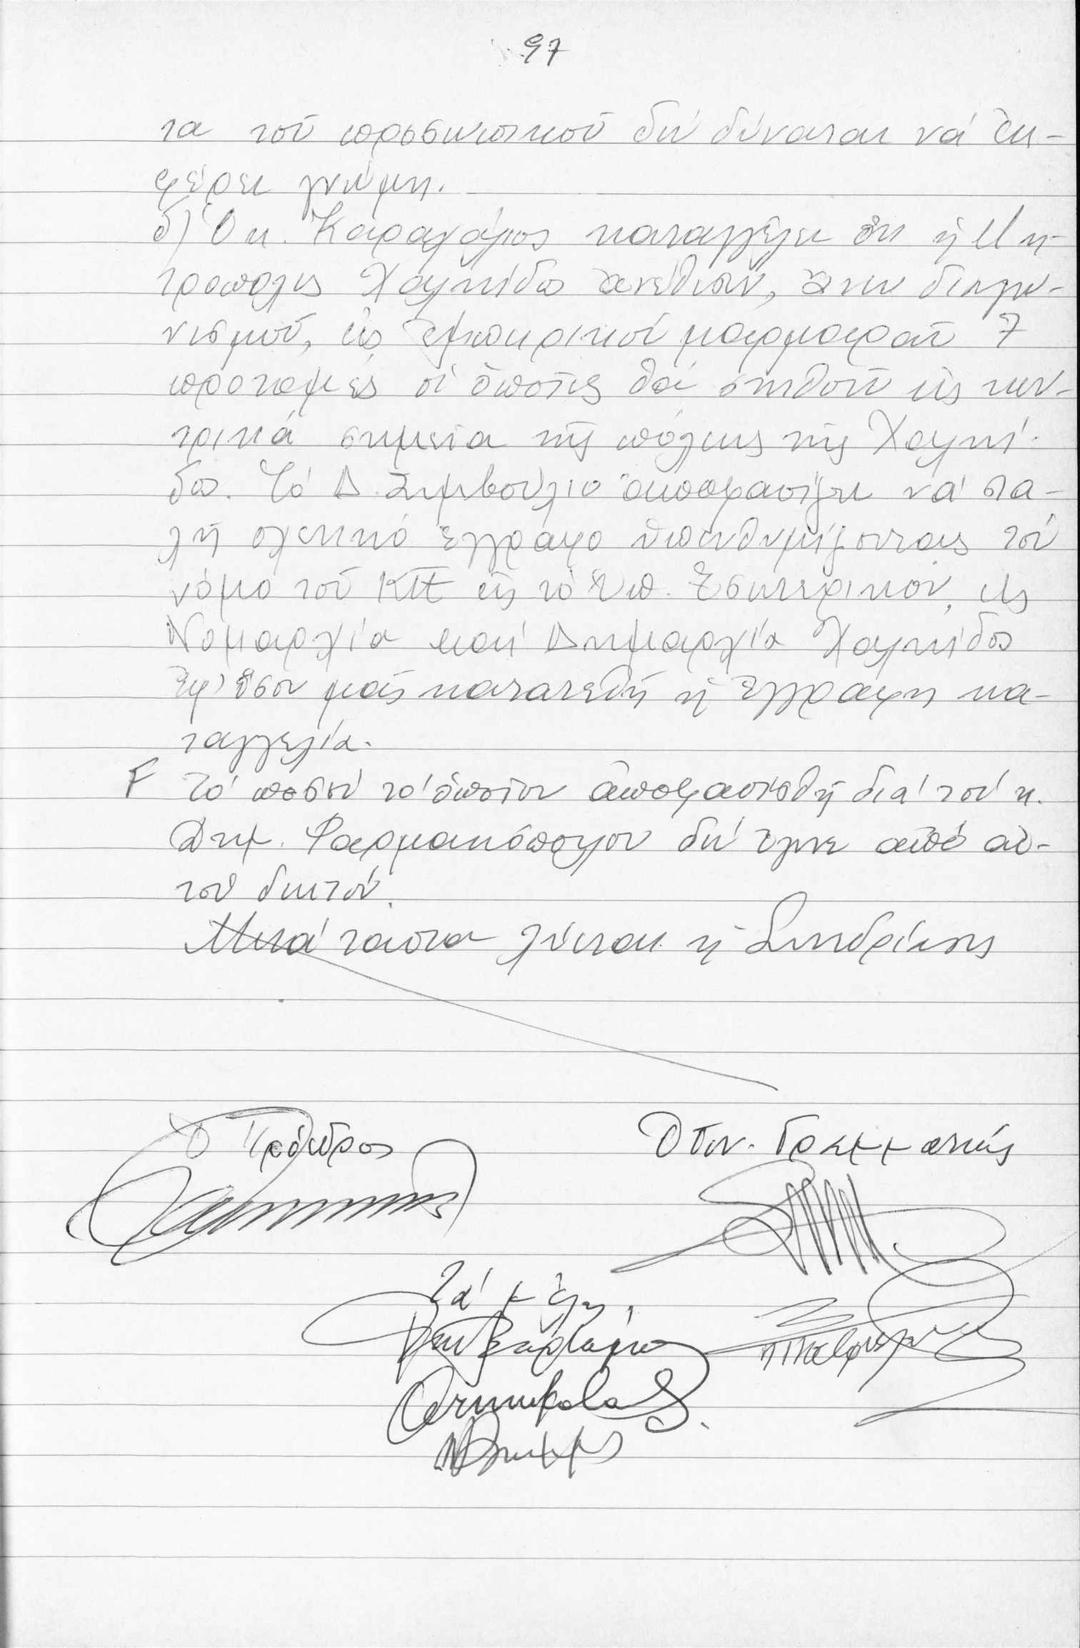 97
τα τοῦ προσωπικοῦ δέν δύναται νά ἐκ-
φέρει γνώμη.
δ) Ὁ κ. Καραχάλιος καταγγέλει ὅτι ἡ Μη-
τρόπολις Χαλκίδος ἀνέθεσεν, ἄνευ διαγω-
νισμοῦ, εἰς ἐμπειρικού μαρμαρᾶ 7
προτομές οἱ ὁποῖες θά στηθοῦν εἰς κεν-
τρικά σημεῖα τῆς πόλεως τῆς Χαλκί-
δος. Τό Δ. Συμβούλιο ἀποφασίζει νά στα-
λῆ σχετικό ἔγγραφο ὑπενθυμίζοντας τόν
νόμο τοῦ ΚΤΕ εἰς τό Ὑπ. Ἐσωτερικῶν, εἰς
Νομαρχία καί Δημαρχία Χαλκίδος
ἐφ' ὅσον μᾶς κατατεθῆ ἡ ἔγγραφη κα-
ταγγελία.
F Τό ποσόν τό ὁποῖον ἀπεφασίσθη διά τόν κ.
Δημ. Φαρμακόπουλον δέν ἔγινε ἀπό αὐ-
τόν δεκτόν.
Μετά ταῦτα λύεται ἡ Συνεδρίασις
Ὁ Πρόεδρος
Ὁ Γεν. Γραμματεύς
Τά μέλη